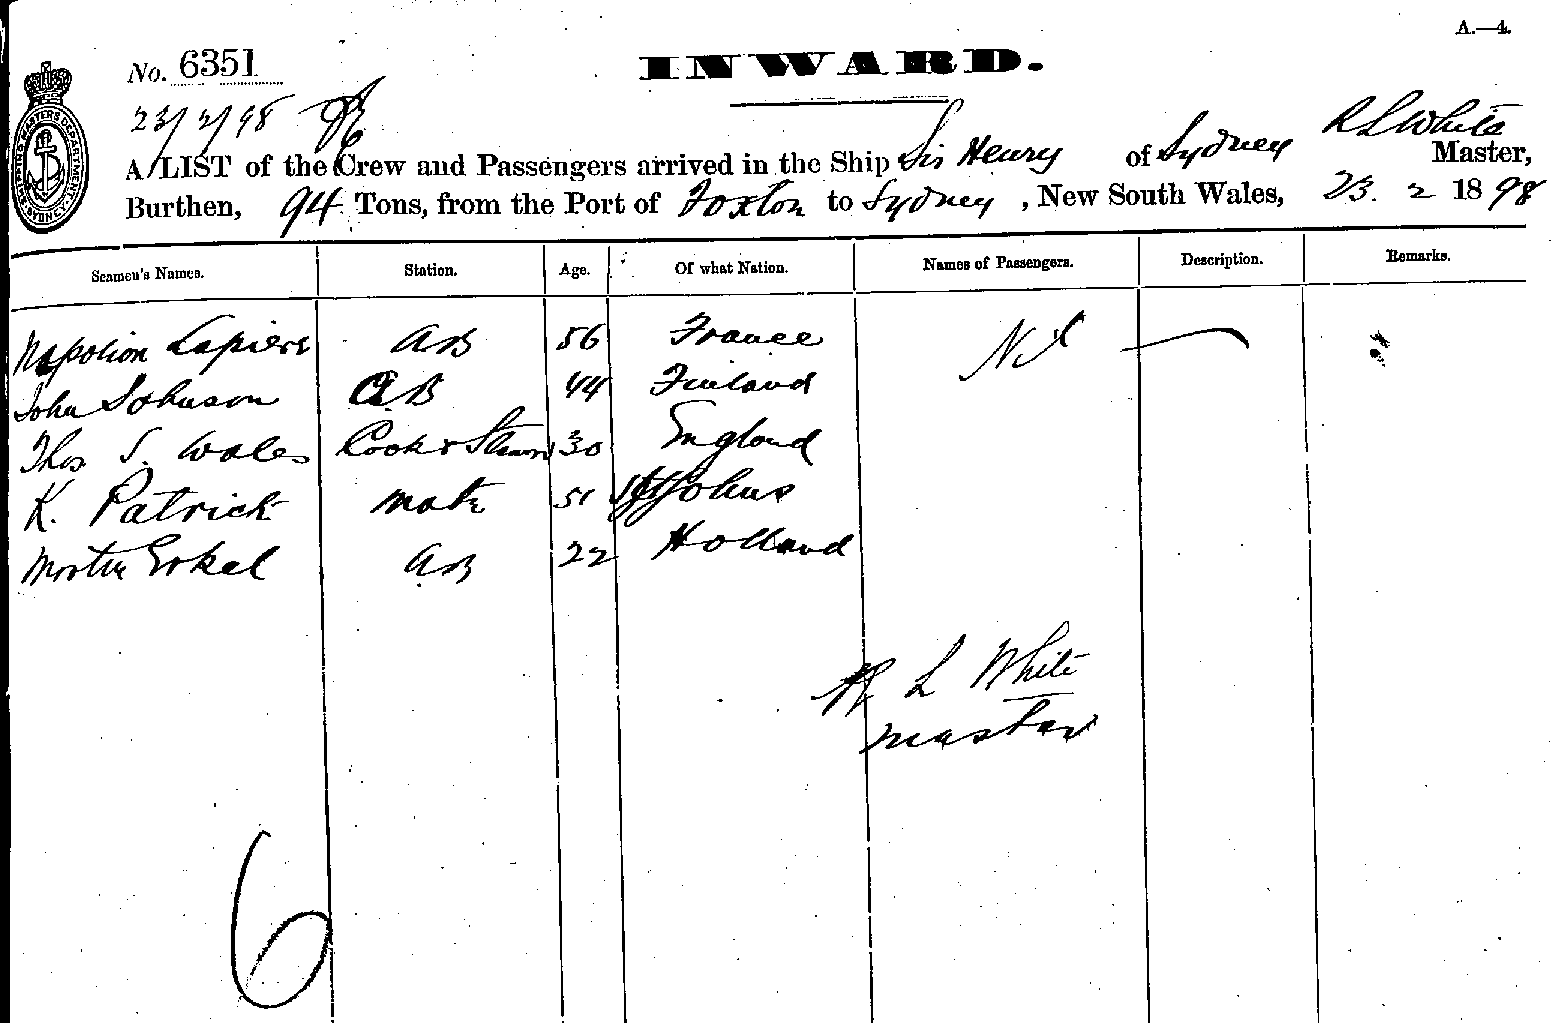 A.—4.
No. 6351
INWARD.
23/2/98
R L White
A LIST of the Crew and Passengers arrived in the Ship Sir Henry of Sydney Master,
Burthen, 94 Tons, from the Port of Foxton to Sydney, New South Wales, 23. 2 1898
SHIPPING MASTER'S DEPARTMENT. SYDNEY.
Seamen's Names. Station. Age. Of what Nation. Names of Passengers. Description. Remarks.
Napolion Lapiere AB 56 France Nil —
John Johnson AB 44 Finland
Thos S. Wales Cook & Steward 30 England
K. Patrick mate 51 St Johns
Erkel AB 22 Holland
R L White
master
6